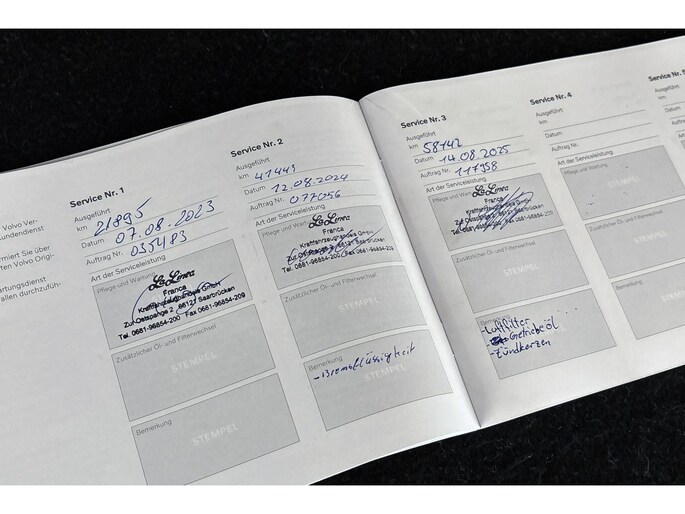 Volvo Ver-
undendienst
rmiert Sie über
rten Volvo Origi-
artungsdienst
allen durchzufüh-
Service Nr. 1
Ausgeführt
km 21895
Datum 07.08.2023
Auftrag Nr. 035483
Art der Serviceleistung
Pflege und Wartung
La Linea
Franca
Kraftfahrzeughandels GmbH
Zur Ostspange 2 66121 Saarbrücken
Tel. 0681-96854-200 Fax 0681-96854-209
Zusätzlicher Öl- und Filterwechsel
STEMPEL
Bemerkung
STEMPEL
Service Nr. 2
Ausgeführt
km 41443
Datum 12.08.2024
Auftrag Nr. 077056
Art der Serviceleistung
Pflege und Wartung
La Linea
Franca
Kraftfahrzeughandels GmbH
Zur Ostspange 2 66121 Saarbrücken
Tel. 0681-96854-200 Fax 0681-96854-209
Zusätzlicher Öl- und Filterwechsel
STEMPEL
Bemerkung
- Bremsflüssigkeit
STEMPEL
Service Nr. 3
Ausgeführt
km 58142
Datum 14.08.2025
Auftrag Nr. 117958
Art der Serviceleistung
Pflege und Wartung
La Linea
Franca
Kraftfahrzeughandels GmbH
Zur Ostspange 2 66121 Saarbrücken
Tel. 0681-96854-200 Fax 0681-96854-209
Zusätzlicher Öl- und Filterwechsel
STEMPEL
Bemerkung
- Luftfilter
- Getriebeöl
- Zündkerzen
Service Nr. 4
Ausgeführt
km
Datum
Auftrag Nr.
Art der Serviceleistung
Pflege und Wartung
STEMPEL
Zusätzlicher Öl- und Filterwechsel
STEMPEL
Bemerkung
STEMPEL
Service Nr. 5
Ausgeführt
km
Datum